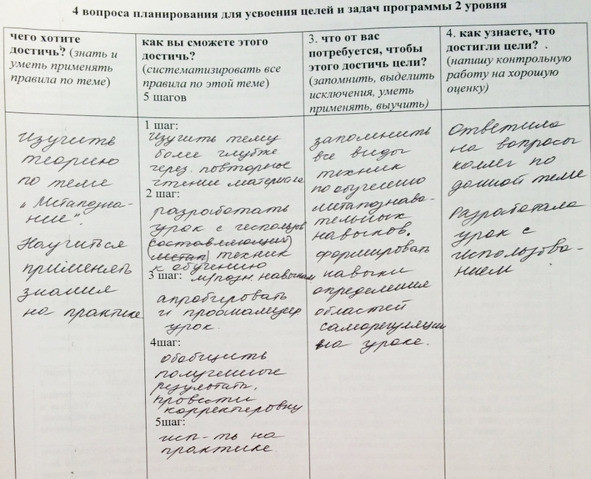 4 вопроса планирования для усвоения целей и задач программы 2 уровня
чего хотите
достичь? (знать и
уметь применять
правила по теме)
Изучить
теорию
по теме
"Метапозна-
ние".
Научится
применять
знания
на практике
как вы сможете этого
достичь?
(систематизировать все
правила по этой теме)
5 шагов
1 шаг:
Изучить тему
более глубже
через повторные
чтения материала
2 шаг:
разработать
урок с использов
составляющий
техник
к обучению
3 шаг: м/позн. навыкам
апробировать
и проанализир
урок.
4шаг:
обобщить
полученные
результаты.
провести
корректировку
5шаг:
исп-ть на
практике
3. что от вас
потребуется, чтобы
этого достичь цели?
(запомнить, выделить
исключения, уметь
применять, выучить)
запомнить
все виды
техник
по обучению
метапознава-
тельных
навыков.
формировать
навыки
определения
областей
саморегуляции
на уроке.
4. как узнаете, что
достигли цели? .
(напишу контрольную
работу на хорошую
оценку)
Ответила
на вопросы
коллег по
данной теме
Разработала
урок с
использова-
нием